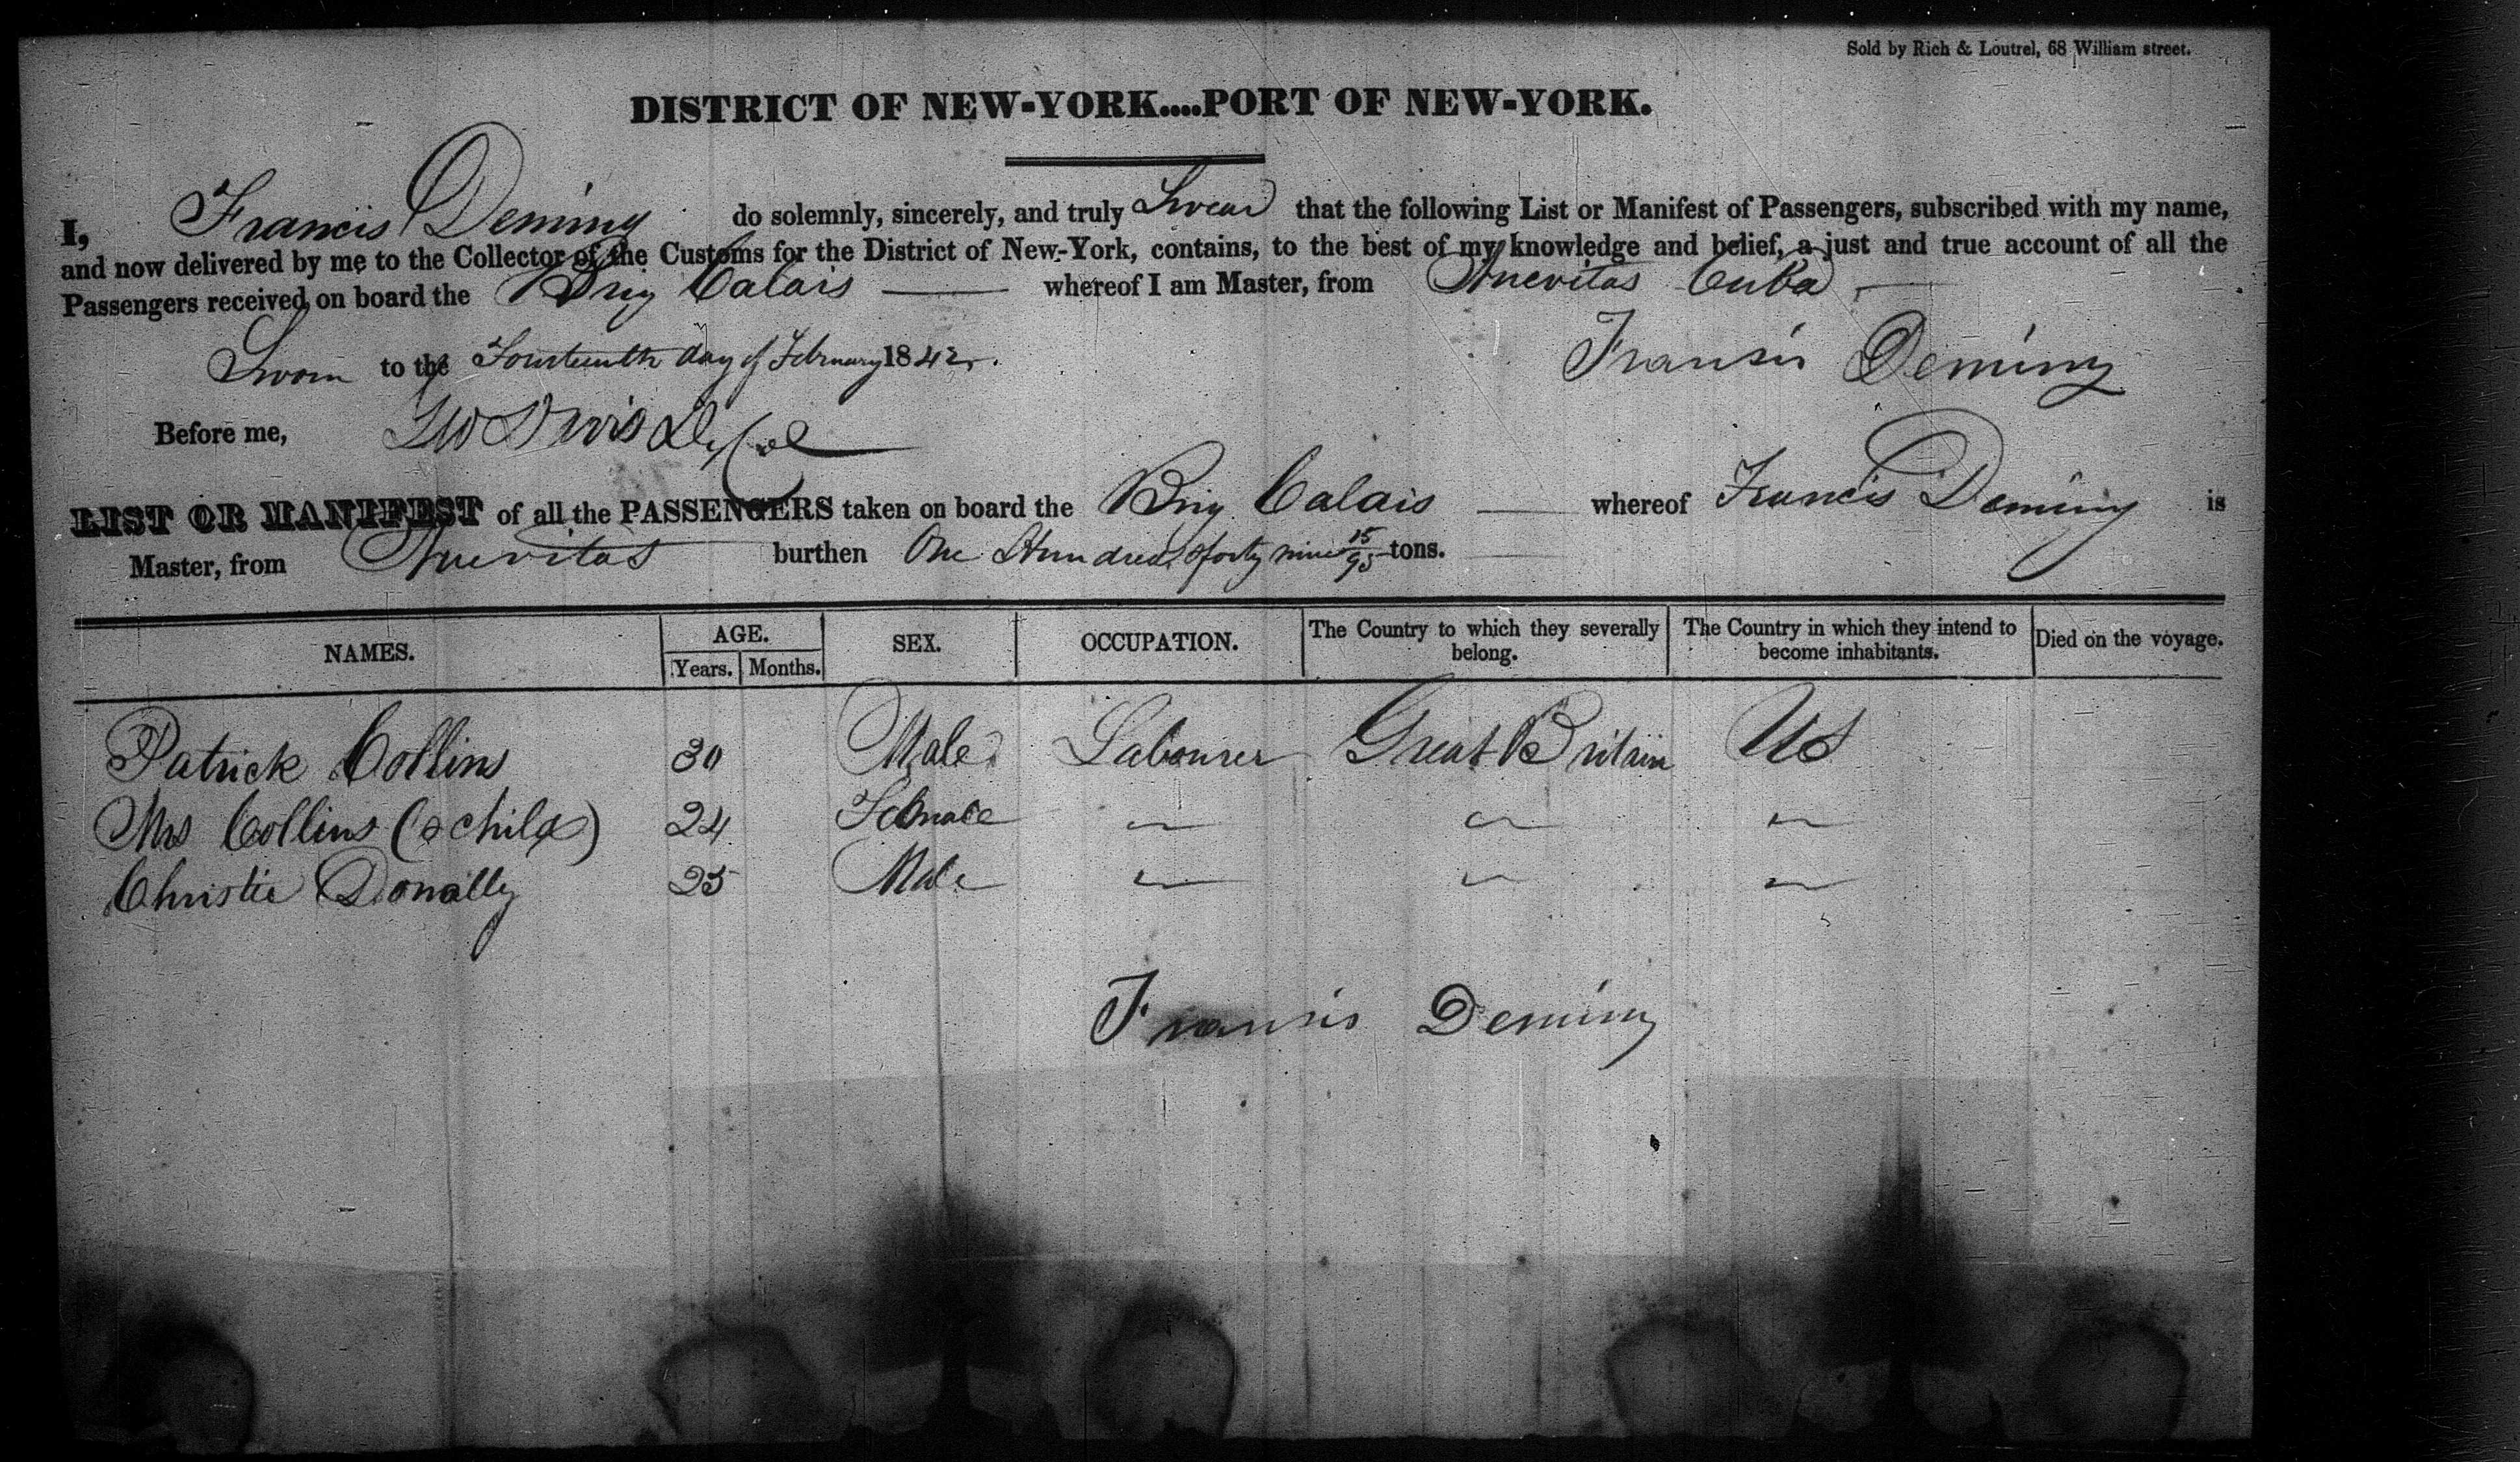 Sold by Rich & Loutrel, 68 William street.
DISTRICT OF NEW-YORK....PORT OF NEW-YORK.
I, Francis Deming do solemnly, sincerely, and truly Swear that the following List or Manifest of Passengers, subscribed with my name,
and now delivered by me to the Collector of the Customs for the District of New-York, contains, to the best of my knowledge and belief, a just and true account of all the
Passengers received on board the Brig Calais whereof I am Master, from Nuevitas Cuba
Sworn to the Fourteenth day of February 1842.
Francis Deming
Before me,
LIST OR MANIFEST of all the PASSENGERS taken on board the Brig Calais whereof Francis Deming is
Master, from Nuevitas burthen One Hundred & forty nine 15/95 tons.
NAMES. AGE. SEX. OCCUPATION. The Country to which they severally belong. The Country in which they intend to become inhabitants. Died on the voyage.
Years. Months.
Patrick Collins 30 Male Labourer Great Britain US
Mrs Collins (& child) 24 Female " " "
Christie Donally 25 Male " " "
Francis Deming